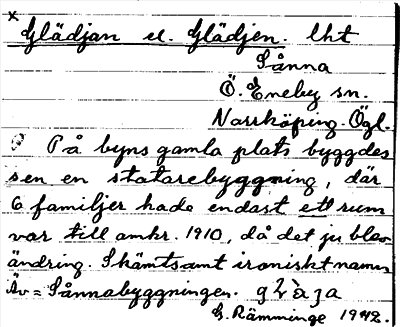 x Glädjan el. Glädjen. lht
Sånna
Ö. Eneby sn.
Norrköping. Ögl.
På byns gamla plats byggdes
sen en statarebyggning, där
6 familjer hade endast ett rum
var till omkr. 1910, då det ju blev
ändring. Skämtsamt ironiskt namn
Äv = Sånnabyggningen.
G. Rämminge 1942.